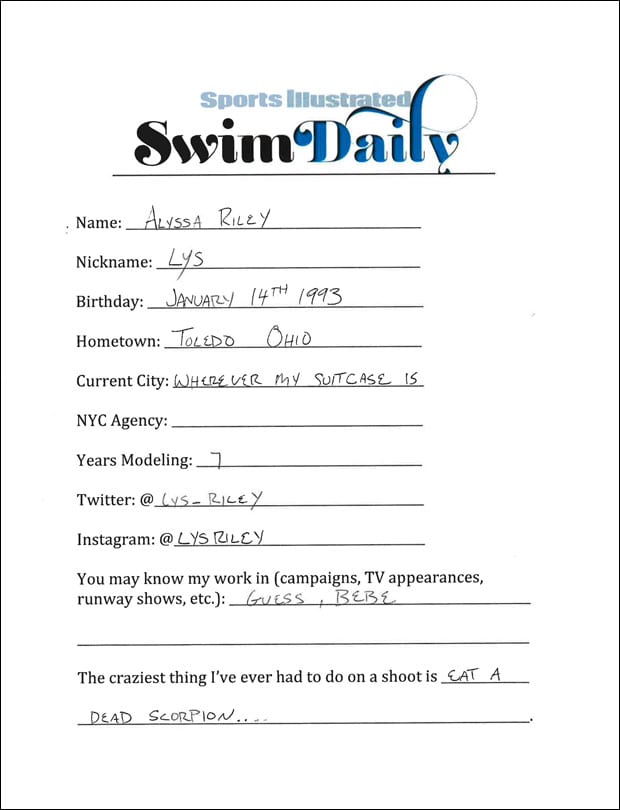 Sports Illustrated
Swim Daily
Name: ALYSSA RILEY
Nickname: LYS
Birthday: JANUARY 14TH 1993
Hometown: TOLEDO OHIO
Current City: WHEREVER MY SUITCASE IS
NYC Agency:
Years Modeling: 7
Twitter: @ LYS_RILEY
Instagram: @ LYSRILEY
You may know my work in (campaigns, TV appearances,
runway shows, etc.): GUESS, BEBE
The craziest thing I've ever had to do on a shoot is EAT A
DEAD SCORPION.... .